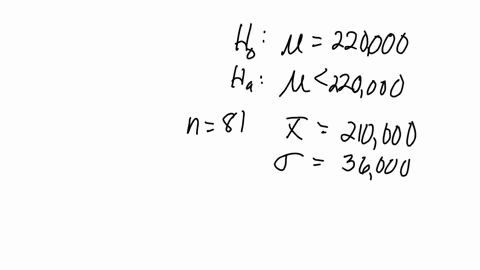 H₀: μ = 220,000
Hₐ: μ < 220,000
n = 81 x̄ = 210,000
σ = 36,000